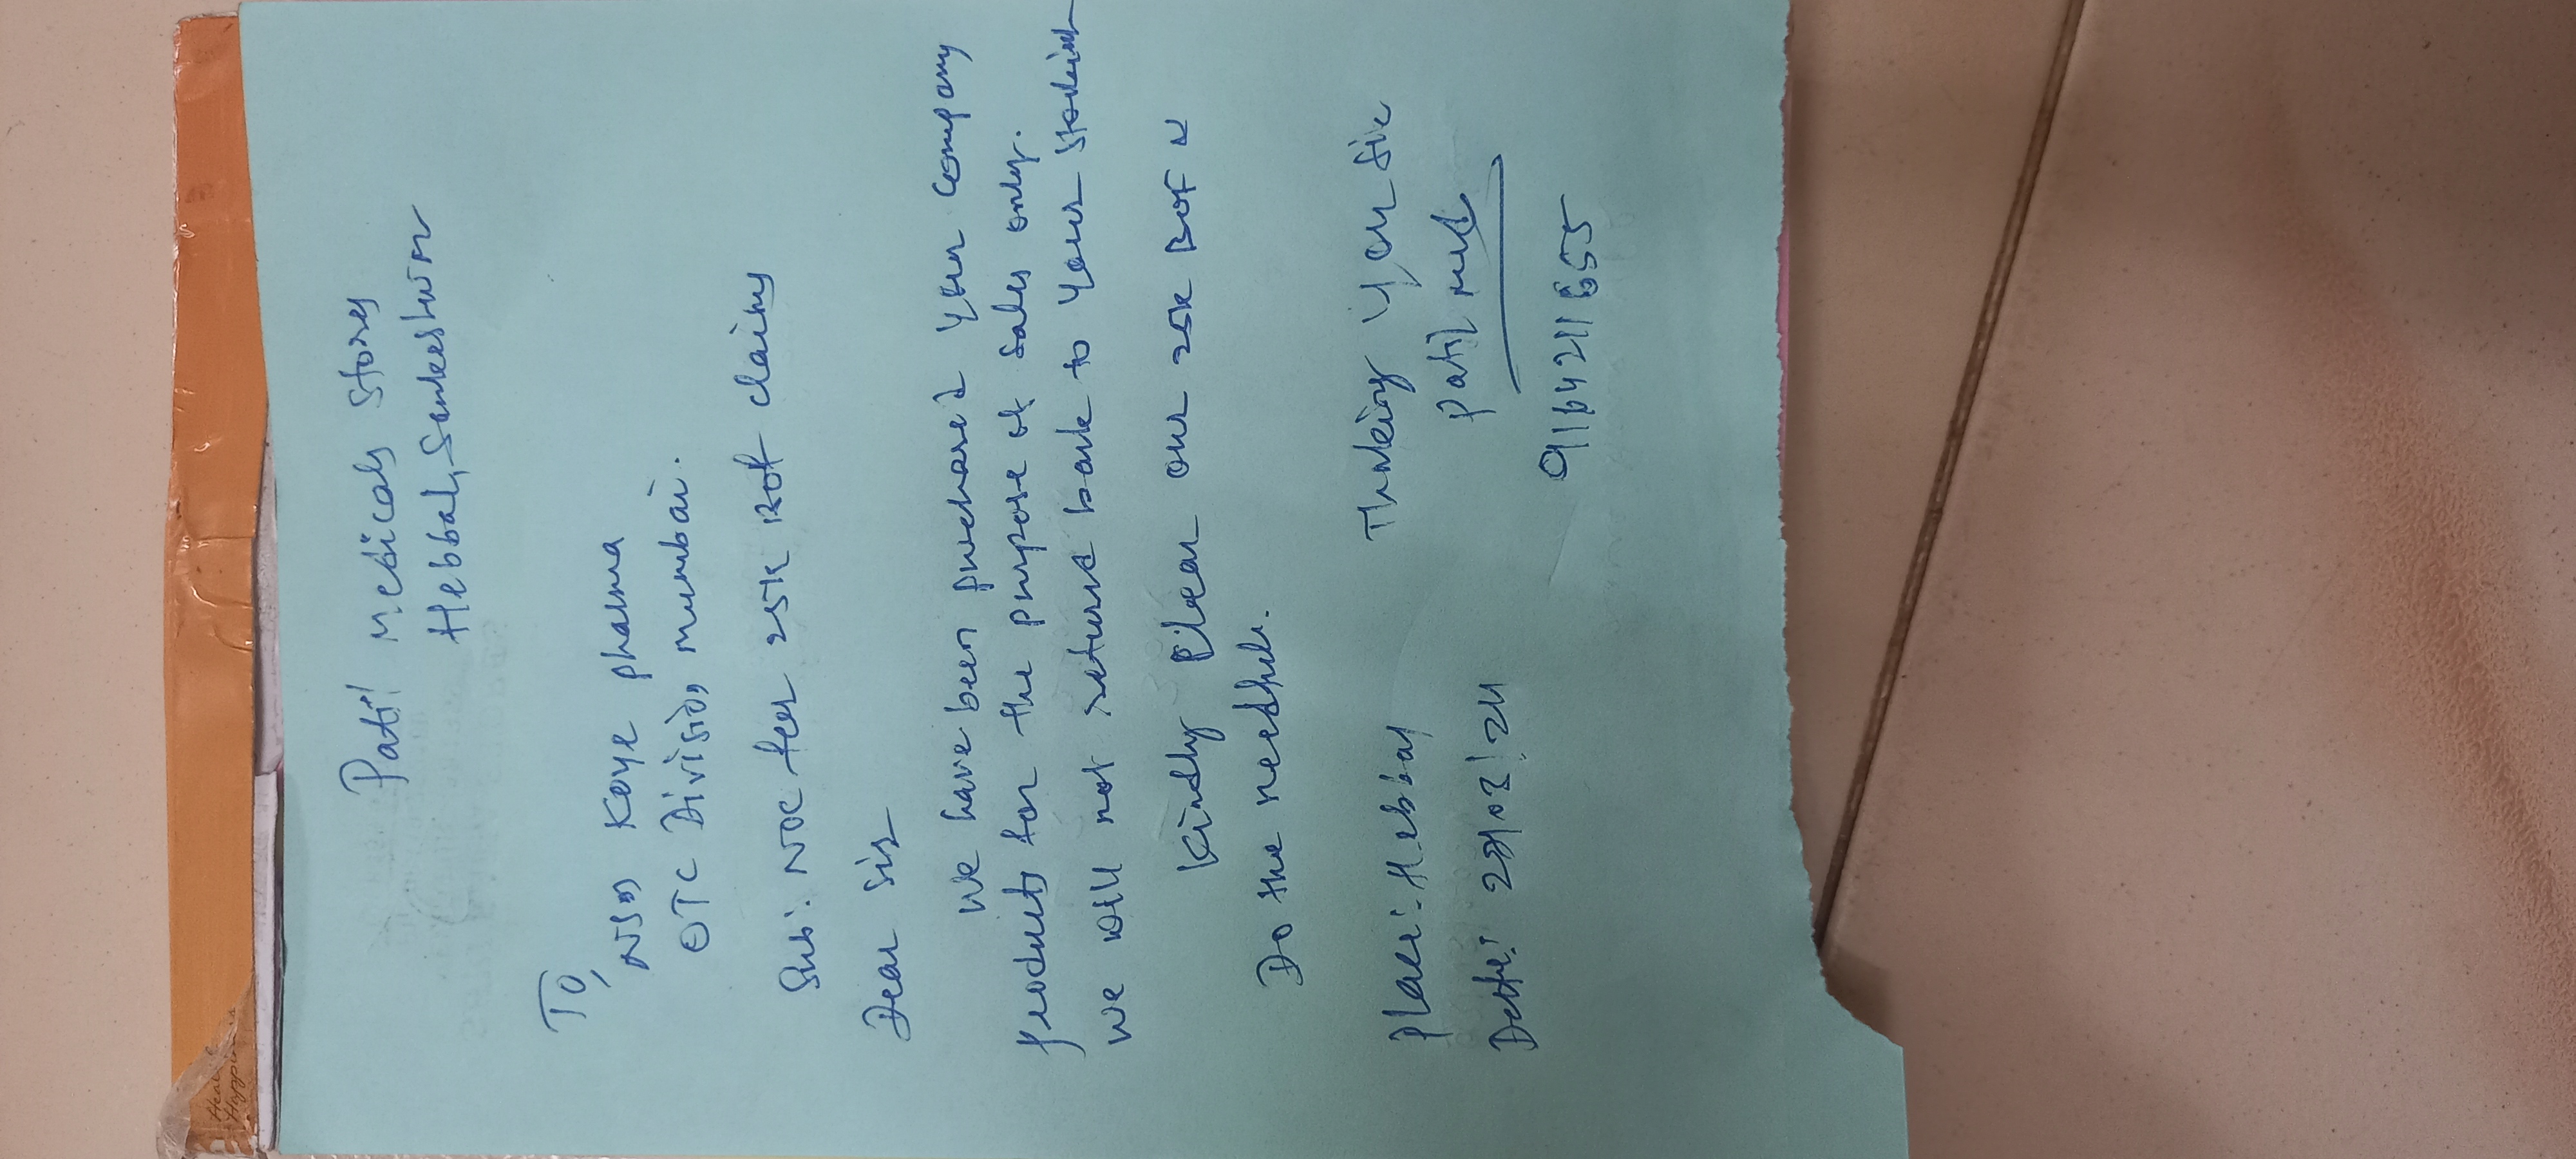 Patil Medicals Stores
Hebbal, Sankeshwar
To,
Koye pharma
OTC Division, mumbai.
Sub:. NOC for 25K ROF claims
Dear Sir
We have been purchased your company
products for the purpose of sales only.
we will not return back to your stockist
Kindly Clear our 25K ROF N
Do the needful.
Thnking you Sir
Patil med
9116421655
Place:- Hebbal
Date: /03/24
Heal
Happi